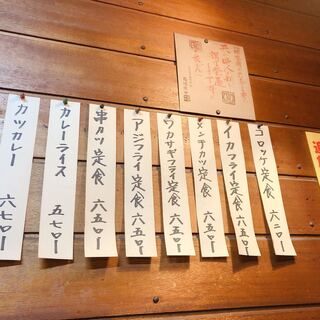 コロッケ定食 六二〇ー
イカフライ定食 六五〇ー
メンチカツ定食 六五〇ー
ワカサギフライ定食 六五〇ー
アジフライ定食 六五〇ー
串カツ定食 六五〇ー
カレーライス 五七〇ー
カツカレー 六七〇ー